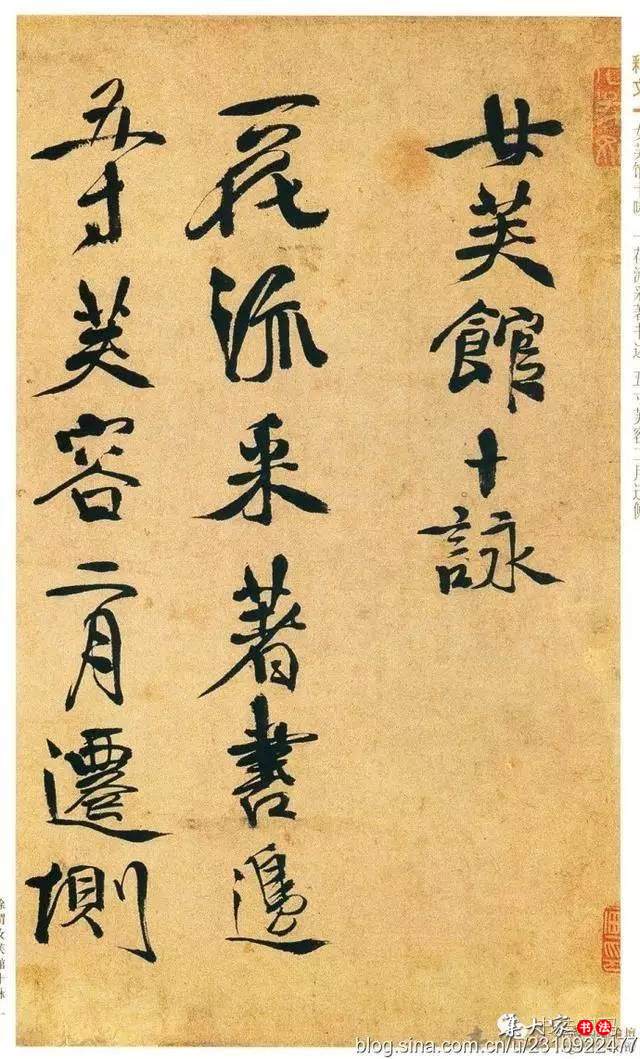 女芙館十詠
一花流采著書邊
五寸芙容二月遷側
释文
女芙馆十咏 一花流采著书边 五寸芙容二月迁侧
徐渭女芙館十詠 一
集大家书法
blog.sina.com.cn/u/2310922477